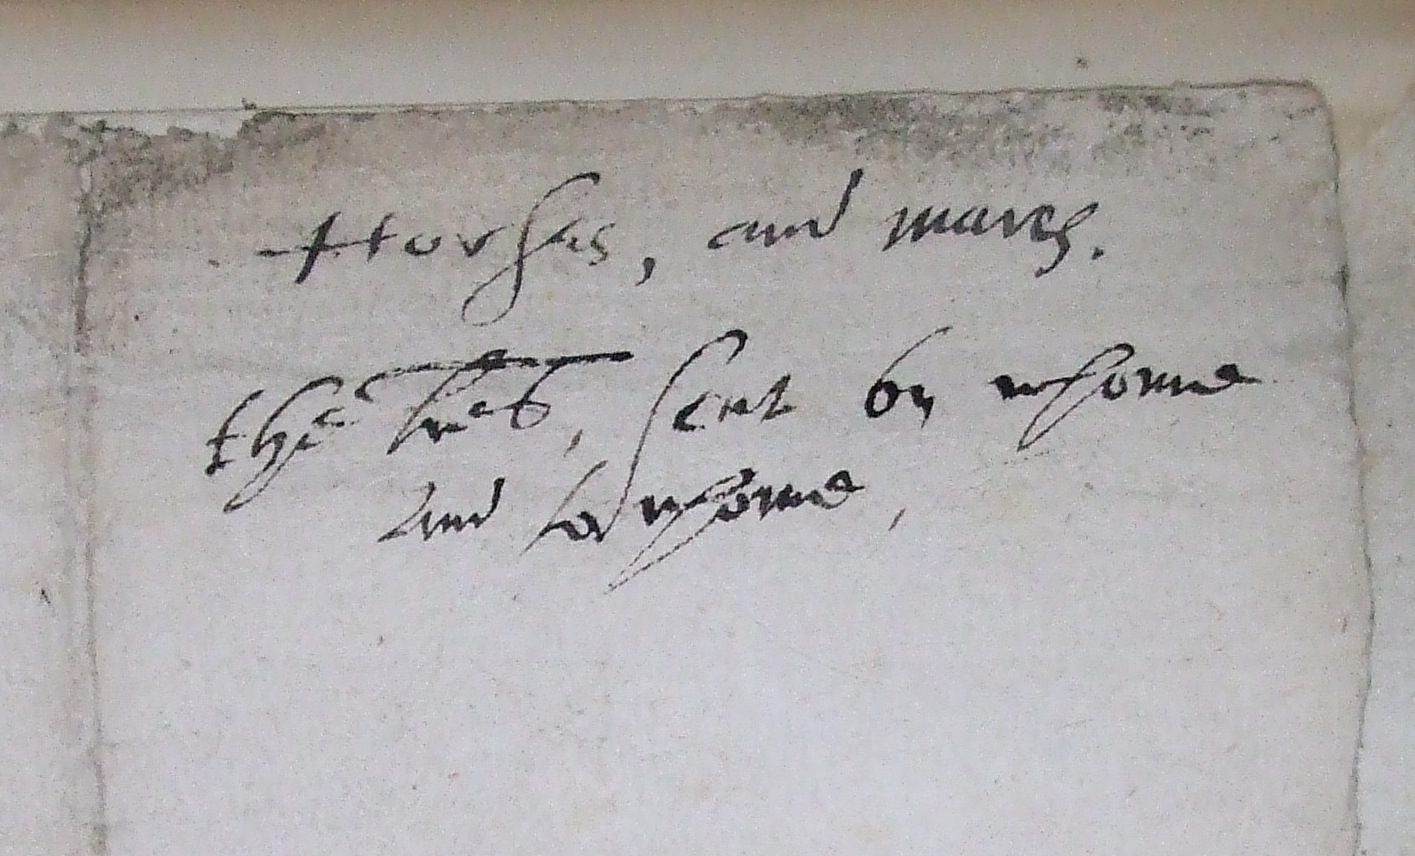 Horses, and mares.
The lres, sent by whome
And to whome,